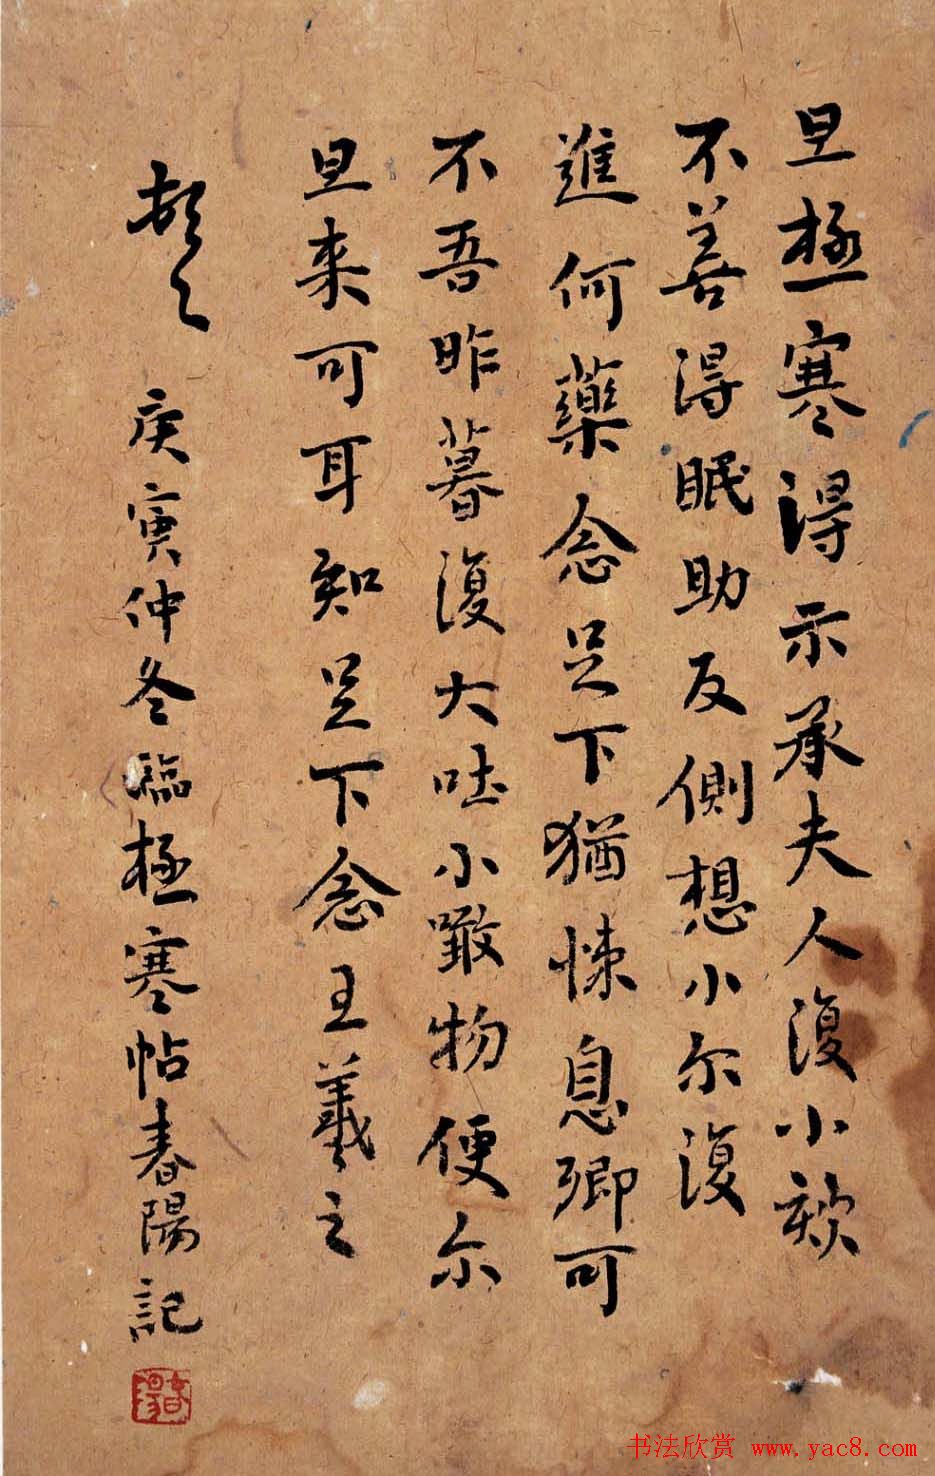 旦極寒得示承夫人復小欬
不善得眠助反側想小尔復
進何藥念足下猶悚息卿可
不吾昨暮復大吐小噉物便尔
旦来可耳知足下念王羲之
頓之
庚寅仲冬臨極寒帖春陽記
書法欣赏 www.yac8.com